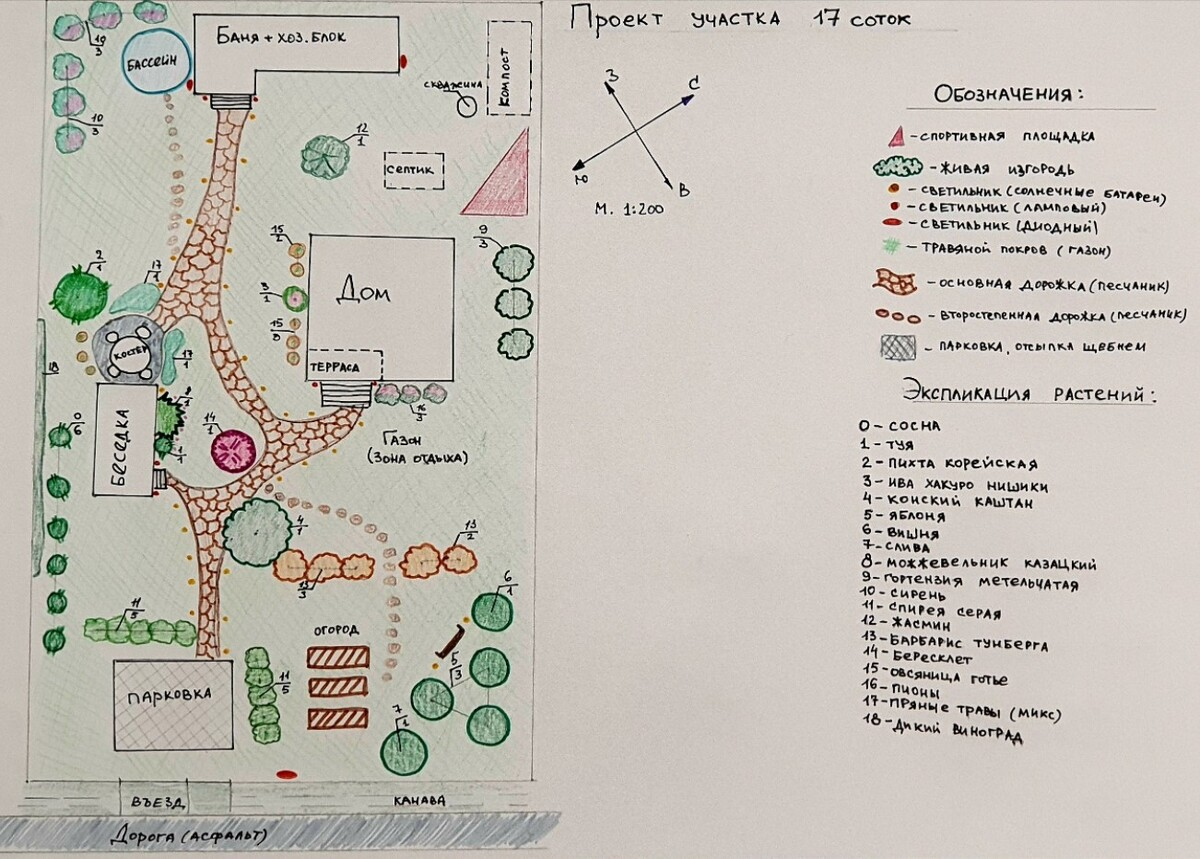 Проект участка 17 соток
З
С
Ю
В
М. 1:200
Обозначения:
- спортивная площадка
- живая изгородь
- светильник (солнечные батареи)
- светильник (ламповый)
- светильник (диодный)
- травяной покров (газон)
- основная дорожка (песчаник)
- второстепенная дорожка (песчаник)
- парковка, отсыпка щебнем
Экспликация растений:
0 - сосна
1 - туя
2 - пихта корейская
3 - ива хакуро нишики
4 - конский каштан
5 - яблоня
6 - вишня
7 - слива
8 - можжевельник казацкий
9 - гортензия метельчатая
10 - сирень
11 - спирея серая
12 - жасмин
13 - барбарис тунберга
14 - бересклет
15 - овсяница готье
16 - пионы
17 - пряные травы (микс)
18 - дикий виноград
10
3
Баня + хоз. блок
бассейн
скважина
компост
10
3
12
1
септик
15
2
9
3
2
1
17
1
3
1
Дом
15
3
костёр
17
1
терраса
18
8
1
16
3
0
6
беседка
14
1
1
1
Газон
(зона отдыха)
4
1
13
2
13
3
6
1
11
5
огород
5
3
парковка
11
5
7
1
въезд
канава
Дорога (асфальт)